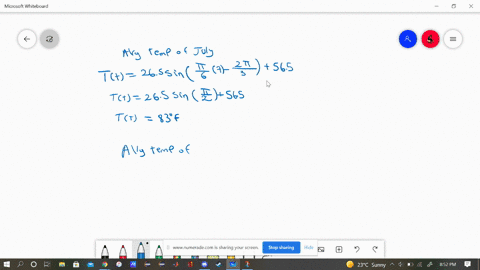 Microsoft Whiteboard
Avg temp of July
T(t) = 26.5 sin(π/6 (7) - 2π/3) + 565
T(7) = 26.5 sin(π/2) + 565
T(7) = 83°f
Avg temp of
www.numerade.com is sharing your screen.
Stop sharing
Hide
23°C Sunny
8:52 PM